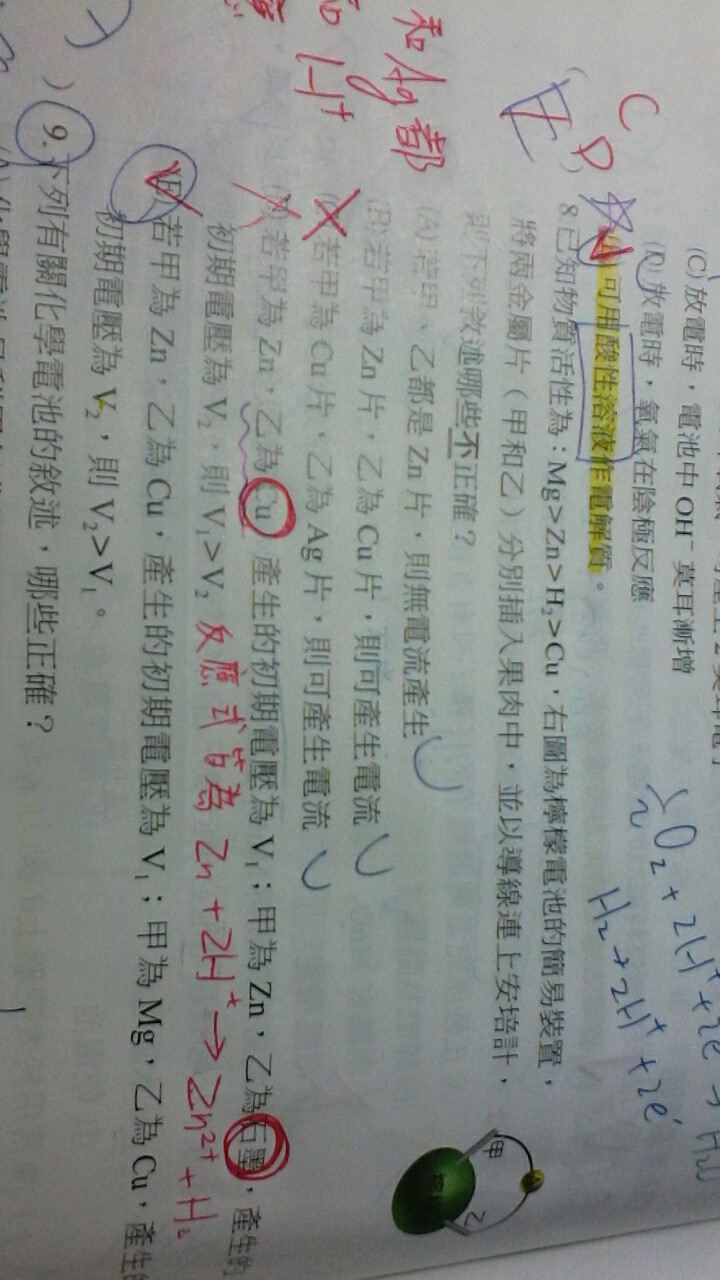 (C)放電時，電池中 OH⁻ 莫耳漸增
放電時，氧氣在陰極反應
可用酸性溶液作電解質。
C D
E
8.已知物質活性為：Mg>Zn>H₂>Cu，右圖為檸檬電池的簡易裝置，
將兩金屬片（甲和乙）分別插入果肉中，並以導線連上安培計，
則下列敘述哪些不正確？
(A)若甲、乙都是 Zn 片，則無電流產生
(B)若甲為 Zn 片，乙為 Cu 片，則可產生電流
若甲為 Cu 片，乙為 Ag 片，則可產生電流
若甲為 Zn，乙為 Cu，產生的初期電壓為 V₁；甲為 Zn，乙為石墨，產生的
初期電壓為 V₂，則 V₁>V₂ 反應式皆為 Zn + 2H⁺ → Zn²⁺ + H₂
若甲為 Zn，乙為 Cu，產生的初期電壓為 V₁；甲為 Mg，乙為 Cu，產生的
初期電壓為 V₂，則 V₂>V₁。
9.下列有關化學電池的敘述，哪些正確？
和Ag都
H⁺
O₂ + 2H⁺ + 2e
H₂ → 2H⁺ + 2e⁻
甲
乙